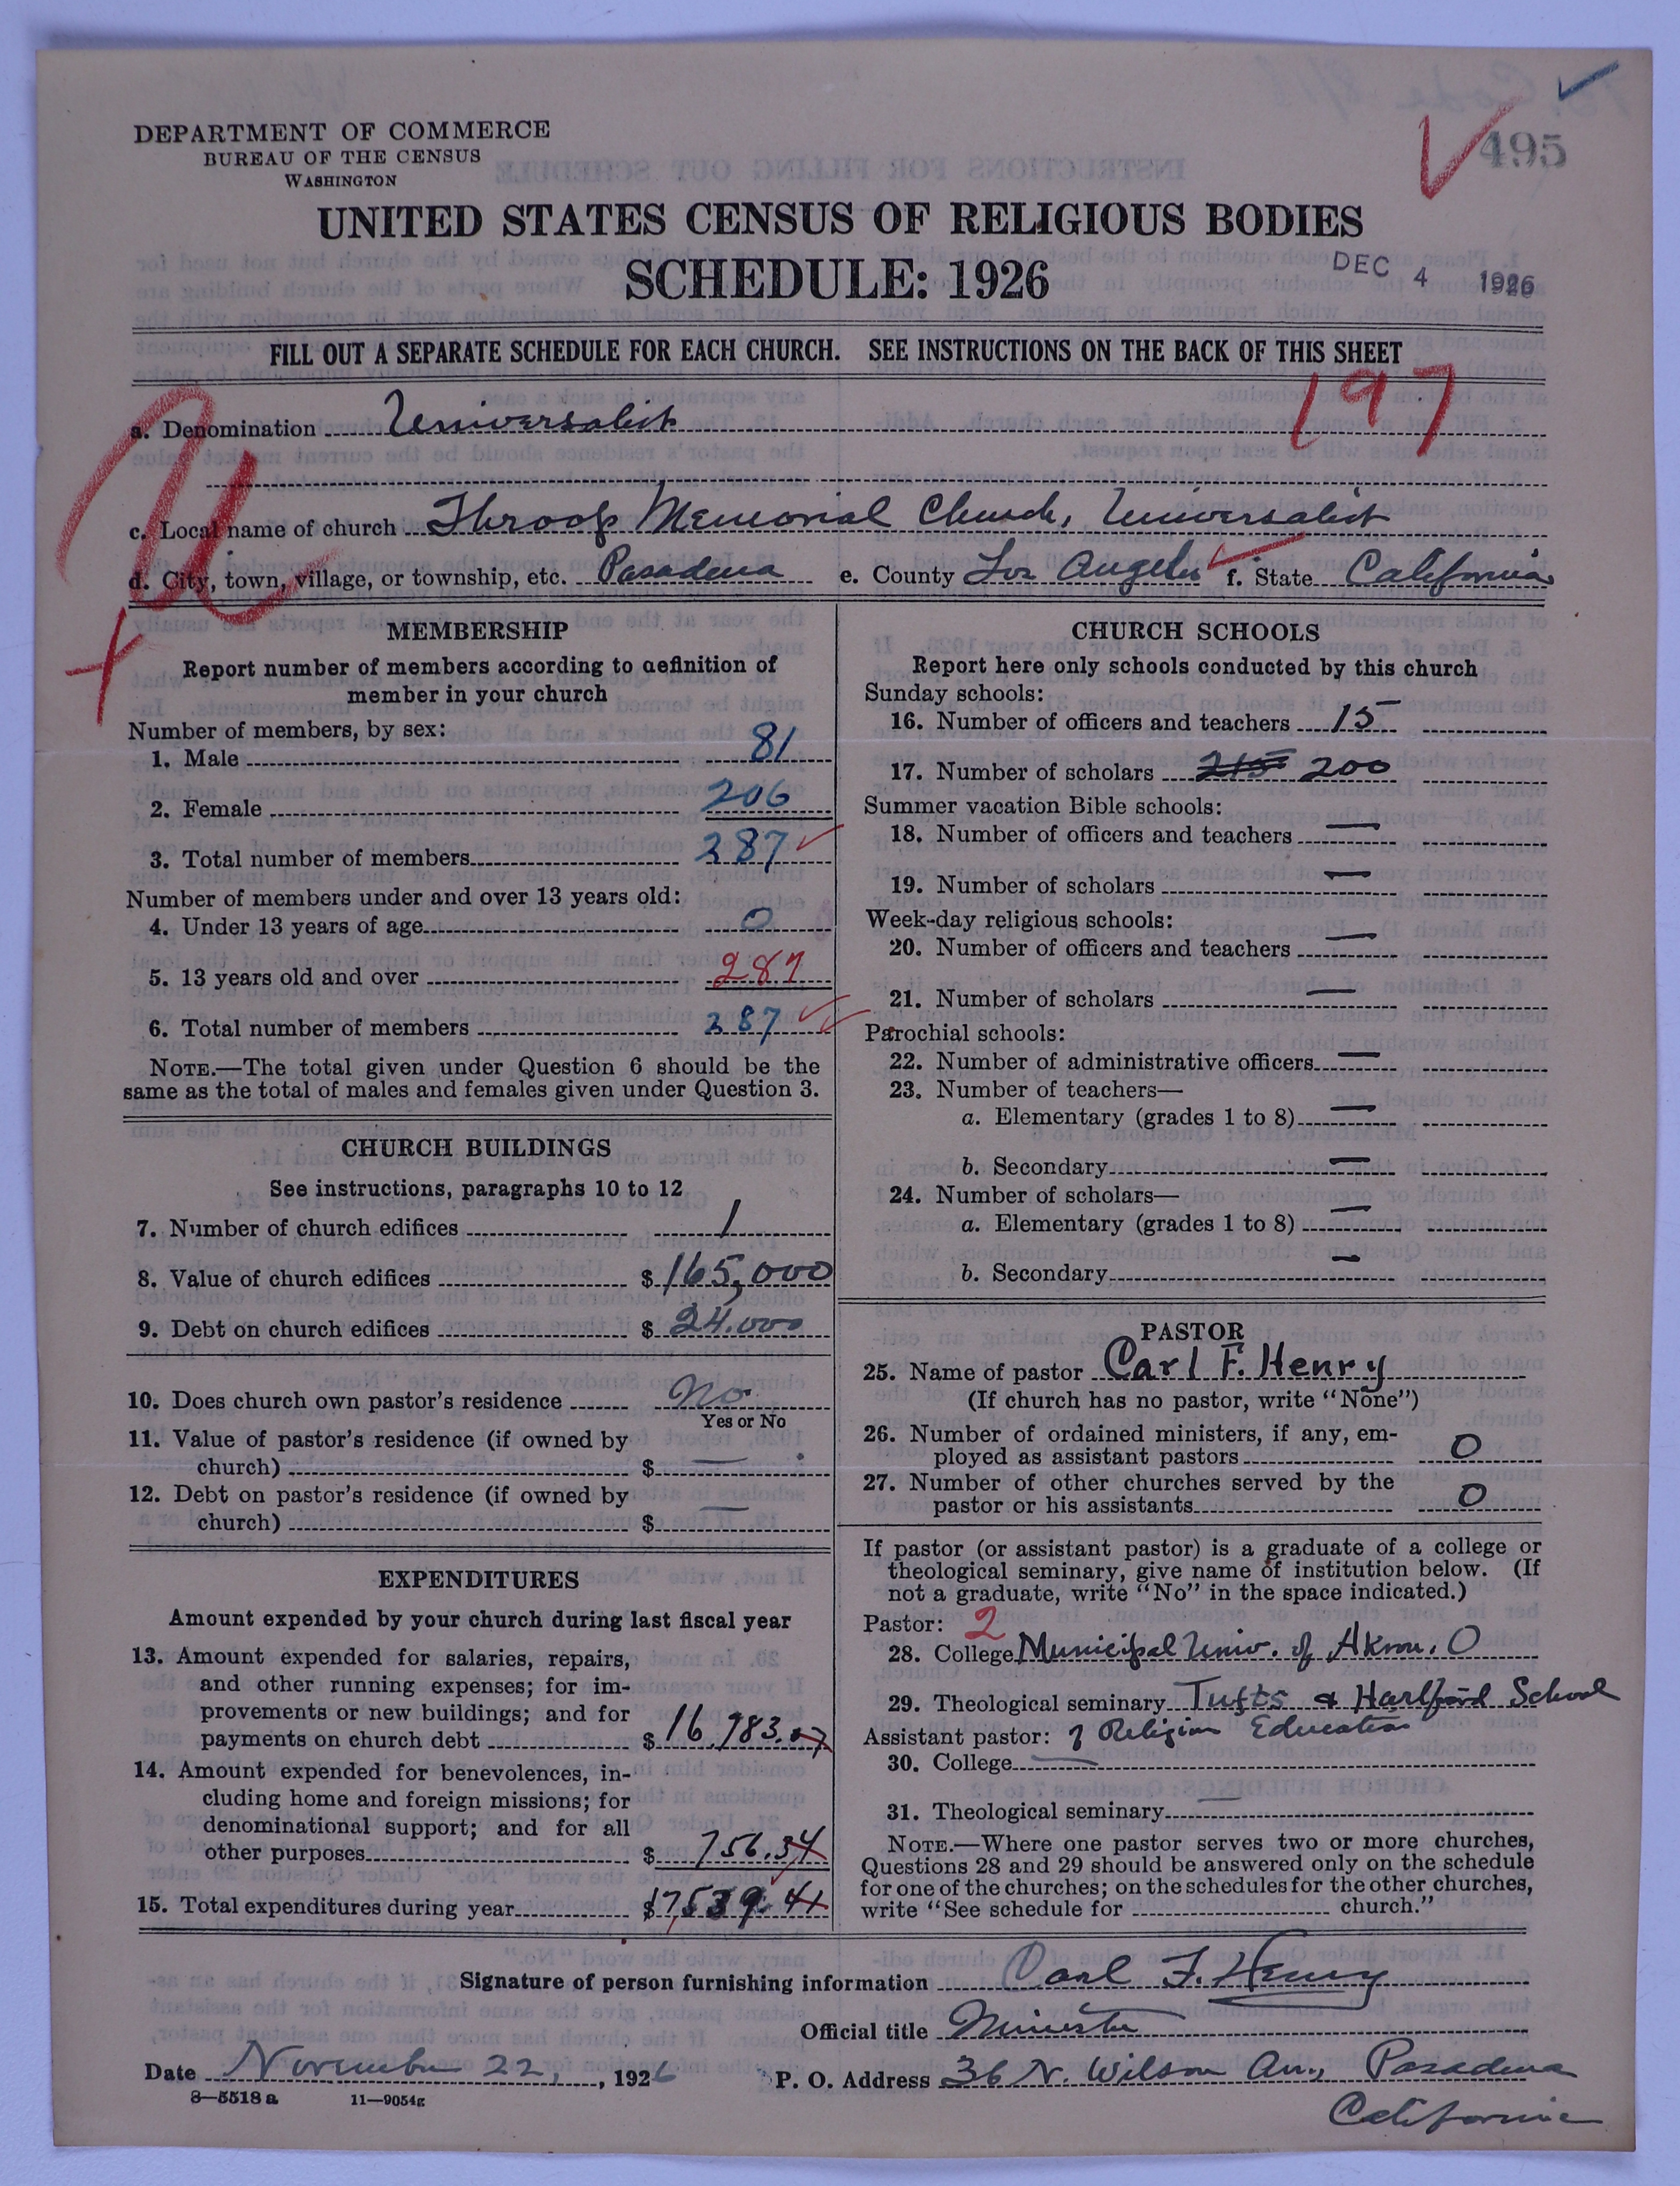 DEPARTMENT OF COMMERCE
BUREAU OF THE CENSUS
WASHINGTON
495
UNITED STATES CENSUS OF RELIGIOUS BODIES
SCHEDULE: 1926
DEC 4 1926
FILL OUT A SEPARATE SCHEDULE FOR EACH CHURCH. SEE INSTRUCTIONS ON THE BACK OF THIS SHEET
197
U
a. Denomination Universalist
c. Local name of church Throop Memorial Church, Universalist
d. City, town, village, or township, etc. Pasadena e. County Los Angeles f. State California
MEMBERSHIP
Report number of members according to definition of
member in your church
Number of members, by sex:
1. Male 81
2. Female 206
3. Total number of members 287
Number of members under and over 13 years old:
4. Under 13 years of age 0
5. 13 years old and over 287
6. Total number of members 287
NOTE.—The total given under Question 6 should be the
same as the total of males and females given under Question 3.
CHURCH BUILDINGS
See instructions, paragraphs 10 to 12
7. Number of church edifices 1
8. Value of church edifices $165,000
9. Debt on church edifices $24.000
10. Does church own pastor's residence No
Yes or No
11. Value of pastor's residence (if owned by
church) $ —
12. Debt on pastor's residence (if owned by
church) $ —
EXPENDITURES
Amount expended by your church during last fiscal year
13. Amount expended for salaries, repairs,
and other running expenses; for im-
provements or new buildings; and for
payments on church debt $16,783.07
14. Amount expended for benevolences, in-
cluding home and foreign missions; for
denominational support; and for all
other purposes $ 756.34
15. Total expenditures during year $17,539.41
CHURCH SCHOOLS
Report here only schools conducted by this church
Sunday schools:
16. Number of officers and teachers 15
17. Number of scholars 215 200
Summer vacation Bible schools:
18. Number of officers and teachers —
19. Number of scholars —
Week-day religious schools:
20. Number of officers and teachers —
21. Number of scholars —
Parochial schools:
22. Number of administrative officers —
23. Number of teachers—
a. Elementary (grades 1 to 8) —
b. Secondary —
24. Number of scholars—
a. Elementary (grades 1 to 8) —
b. Secondary —
PASTOR
25. Name of pastor Carl F. Henry
(If church has no pastor, write "None")
26. Number of ordained ministers, if any, em-
ployed as assistant pastors 0
27. Number of other churches served by the
pastor or his assistants 0
If pastor (or assistant pastor) is a graduate of a college or
theological seminary, give name of institution below. (If
not a graduate, write "No" in the space indicated.)
Pastor: 2
28. College Municipal Univ. of Akron. O
29. Theological seminary Tufts & Hartford School
Assistant pastor: of Religion Education
30. College —
31. Theological seminary —
NOTE.—Where one pastor serves two or more churches,
Questions 28 and 29 should be answered only on the schedule
for one of the churches; on the schedules for the other churches,
write "See schedule for church."
Signature of person furnishing information Carl F. Henry
Official title Minister
Date November 22, 1926 P. O. Address 36 N. Wilson Av., Pasadena
California
8—5518 a 11—9054g